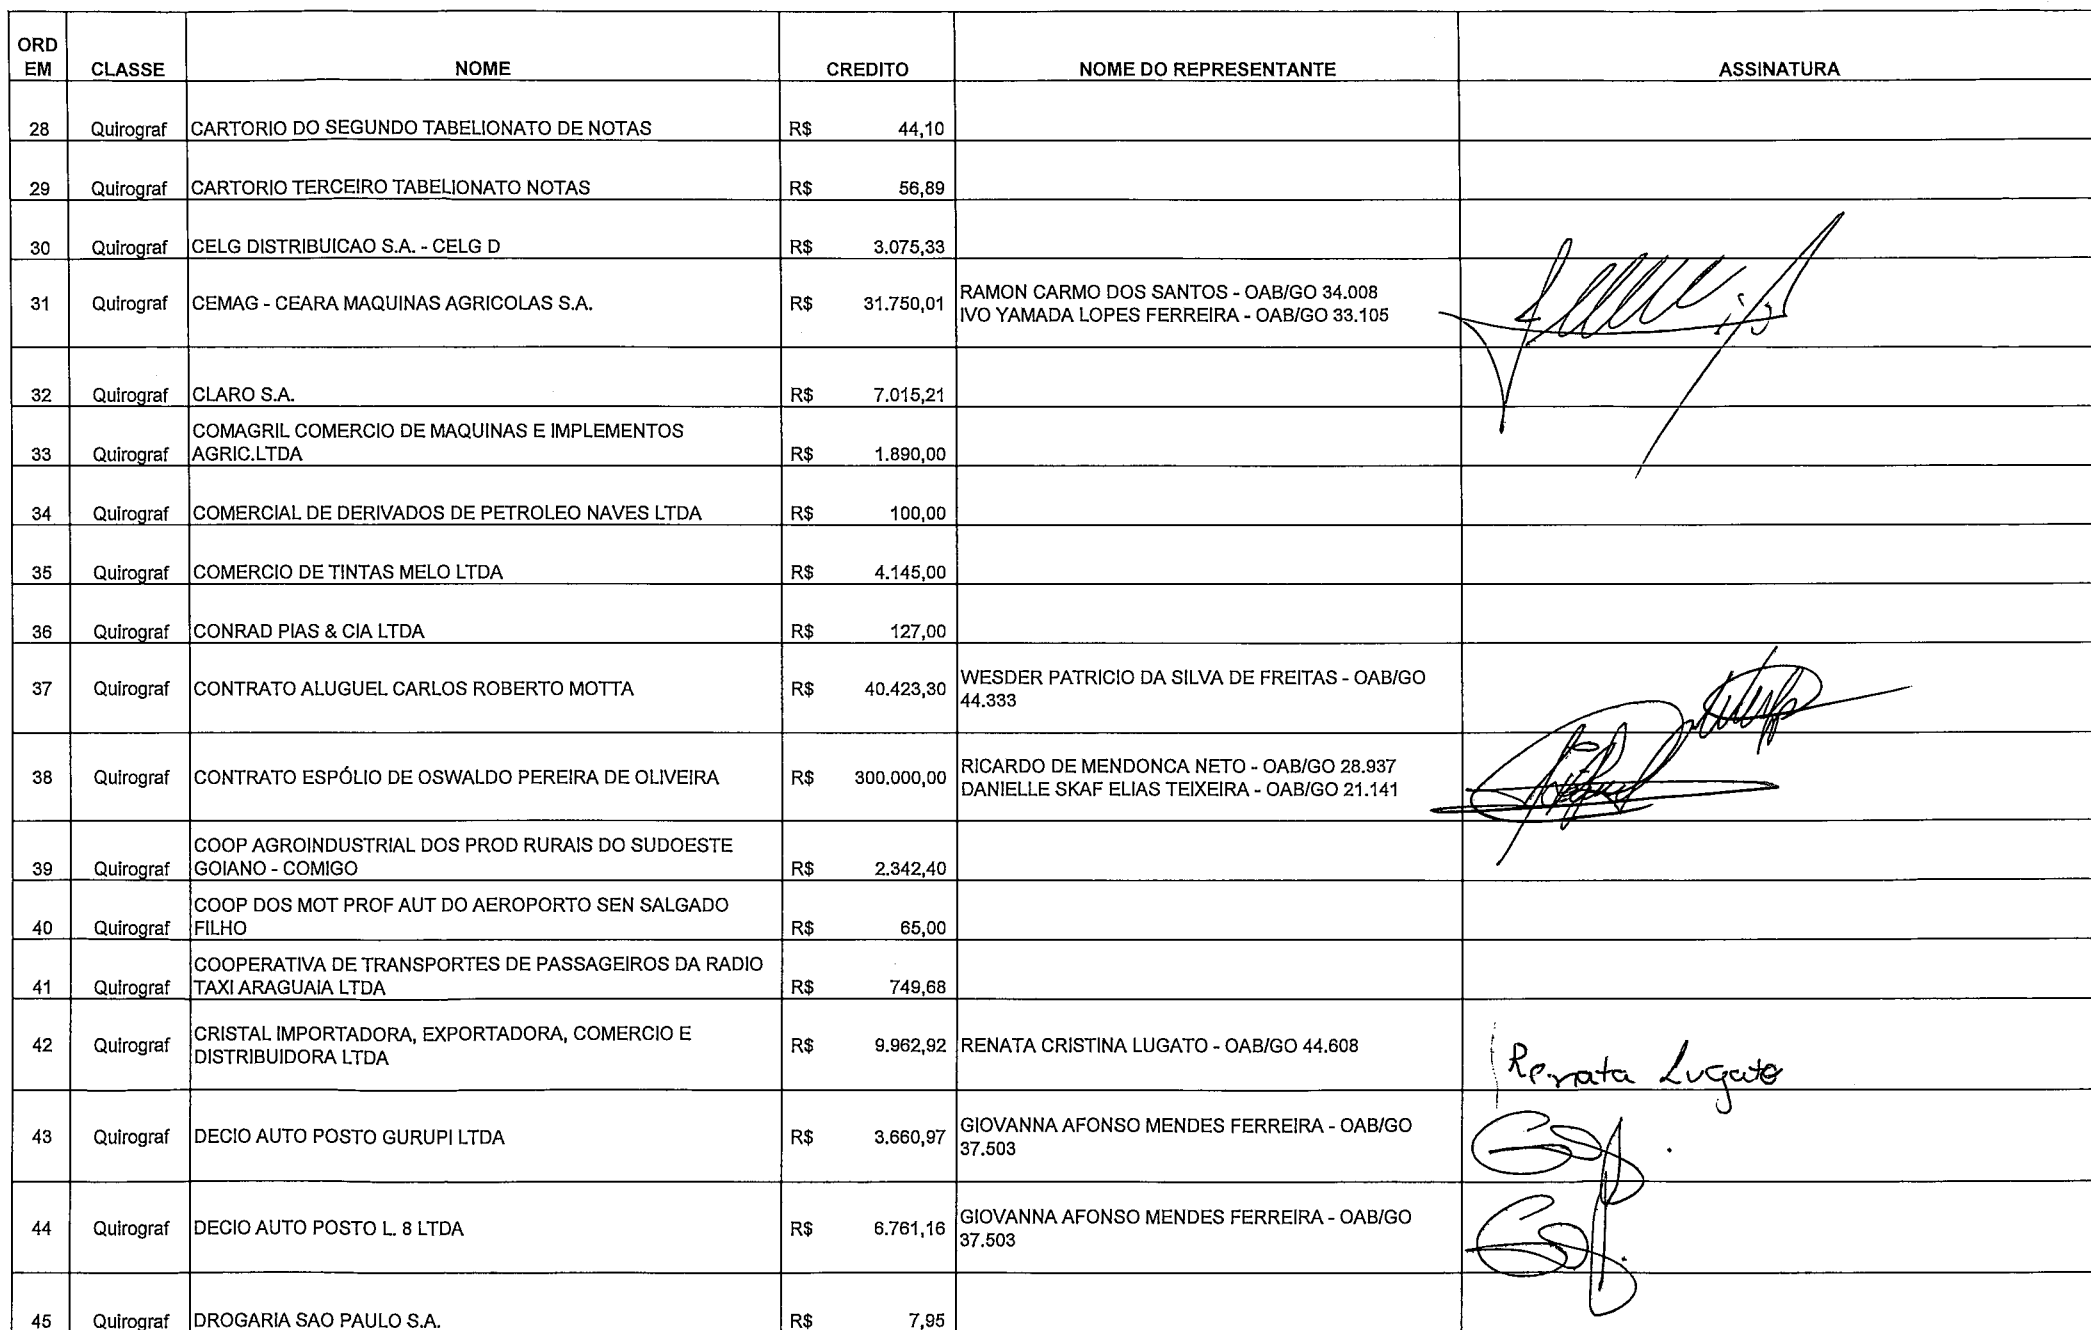 ORD
EM CLASSE NOME CREDITO NOME DO REPRESENTANTE ASSINATURA
28 Quirograf CARTORIO DO SEGUNDO TABELIONATO DE NOTAS R$ 44,10
29 Quirograf CARTORIO TERCEIRO TABELIONATO NOTAS R$ 56,89
30 Quirograf CELG DISTRIBUICAO S.A. - CELG D R$ 3.075,33
31 Quirograf CEMAG - CEARA MAQUINAS AGRICOLAS S.A. R$ 31.750,01 RAMON CARMO DOS SANTOS - OAB/GO 34.008
IVO YAMADA LOPES FERREIRA - OAB/GO 33.105
32 Quirograf CLARO S.A. R$ 7.015,21
COMAGRIL COMERCIO DE MAQUINAS E IMPLEMENTOS
33 Quirograf AGRIC.LTDA R$ 1.890,00
34 Quirograf COMERCIAL DE DERIVADOS DE PETROLEO NAVES LTDA R$ 100,00
35 Quirograf COMERCIO DE TINTAS MELO LTDA R$ 4.145,00
36 Quirograf CONRAD PIAS & CIA LTDA R$ 127,00
37 Quirograf CONTRATO ALUGUEL CARLOS ROBERTO MOTTA R$ 40.423,30 WESDER PATRICIO DA SILVA DE FREITAS - OAB/GO
44.333
38 Quirograf CONTRATO ESPÓLIO DE OSWALDO PEREIRA DE OLIVEIRA R$ 300.000,00 RICARDO DE MENDONCA NETO - OAB/GO 28.937
DANIELLE SKAF ELIAS TEIXEIRA - OAB/GO 21.141
COOP AGROINDUSTRIAL DOS PROD RURAIS DO SUDOESTE
39 Quirograf GOIANO - COMIGO R$ 2.342,40
COOP DOS MOT PROF AUT DO AEROPORTO SEN SALGADO
40 Quirograf FILHO R$ 65,00
COOPERATIVA DE TRANSPORTES DE PASSAGEIROS DA RADIO
41 Quirograf TAXI ARAGUAIA LTDA R$ 749,68
42 Quirograf CRISTAL IMPORTADORA, EXPORTADORA, COMERCIO E
DISTRIBUIDORA LTDA R$ 9.962,92 RENATA CRISTINA LUGATO - OAB/GO 44.608 Renata Lugato
43 Quirograf DECIO AUTO POSTO GURUPI LTDA R$ 3.660,97 GIOVANNA AFONSO MENDES FERREIRA - OAB/GO
37.503
44 Quirograf DECIO AUTO POSTO L. 8 LTDA R$ 6.761,16 GIOVANNA AFONSO MENDES FERREIRA - OAB/GO
37.503
45 Quirograf DROGARIA SAO PAULO S.A. R$ 7,95